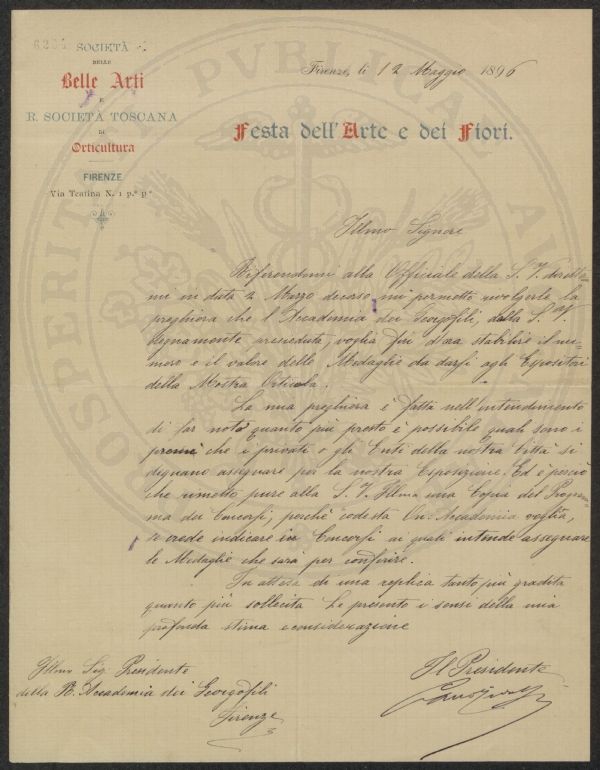 SOCIETÀ
DELLE
Belle Arti
E
R. SOCIETÀ TOSCANA
DI
Orticultura
FIRENZE
Via Teatina N. 1 p.º p.º
Firenze, li 12 Maggio 1896
Festa dell'Arte e dei Fiori.
PROSPERITATI PVBLICAE
Illmo Signore
Riferendomi alla Officiale della S. V. diretta
mi in data 2 Marzo decorso mi permetto rivolgerle la
preghiera che l'Accademia dei Georgofili, dalla S. V.
degnamente presieduta, voglia fin d'ora stabilire il nu-
mero e il valore delle Medaglie da darsi agli Espositori
della Mostra Orticola.
La mia preghiera è fatta nell'intendimento
di far noto quanto più presto è possibile quali sono i
premi che i privati e gli Enti della nostra Città si
degnano assegnare per la nostra Esposizione. Ed è perciò
che rimetto pure alla S. V. Illma una Copia del Program-
ma dei Concorsi, perchè codesta On. Accademia voglia,
se crede indicare in Concorsi ai quali intende assegnare
le Medaglie che sarà per conferire.
In attesa di una replica tanto più gradita
quanto più sollecita Le presento i sensi della mia
profonda stima e considerazione
Il Presidente
Illmo Sig. Presidente
della R. Accademia dei Georgofili
Firenze